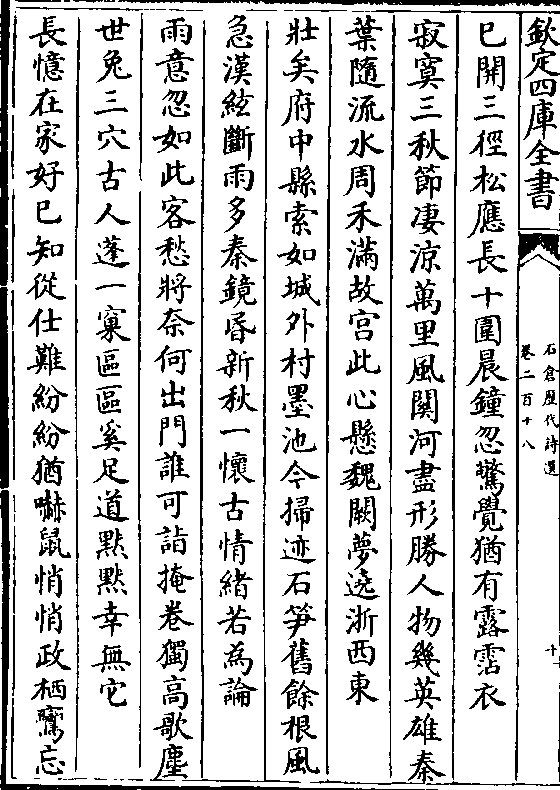 欽定四庫全書
石倉歷代詩選
卷二百十八
十
已開三徑松應長十圍晨鐘忽驚覺猶有露霑衣
寂寞三秋節凄涼萬里風關河盡形勝人物幾英雄秦
葉隨流水周禾滿故宮此心懸魏闕夢遶浙西東
壯矣府中縣索如城外村墨池今掃迹石笋舊餘根風
急漢絃斷雨多秦鏡昏新秋一懷古情緒若為論
雨意忽如此客愁將奈何出門誰可詣掩卷獨高歌塵
世兔三穴古人蓬一窠區區奚足道黙黙幸無它
長憶在家好已知從仕難紛紛猶嚇鼠悄悄政栖鸞忘